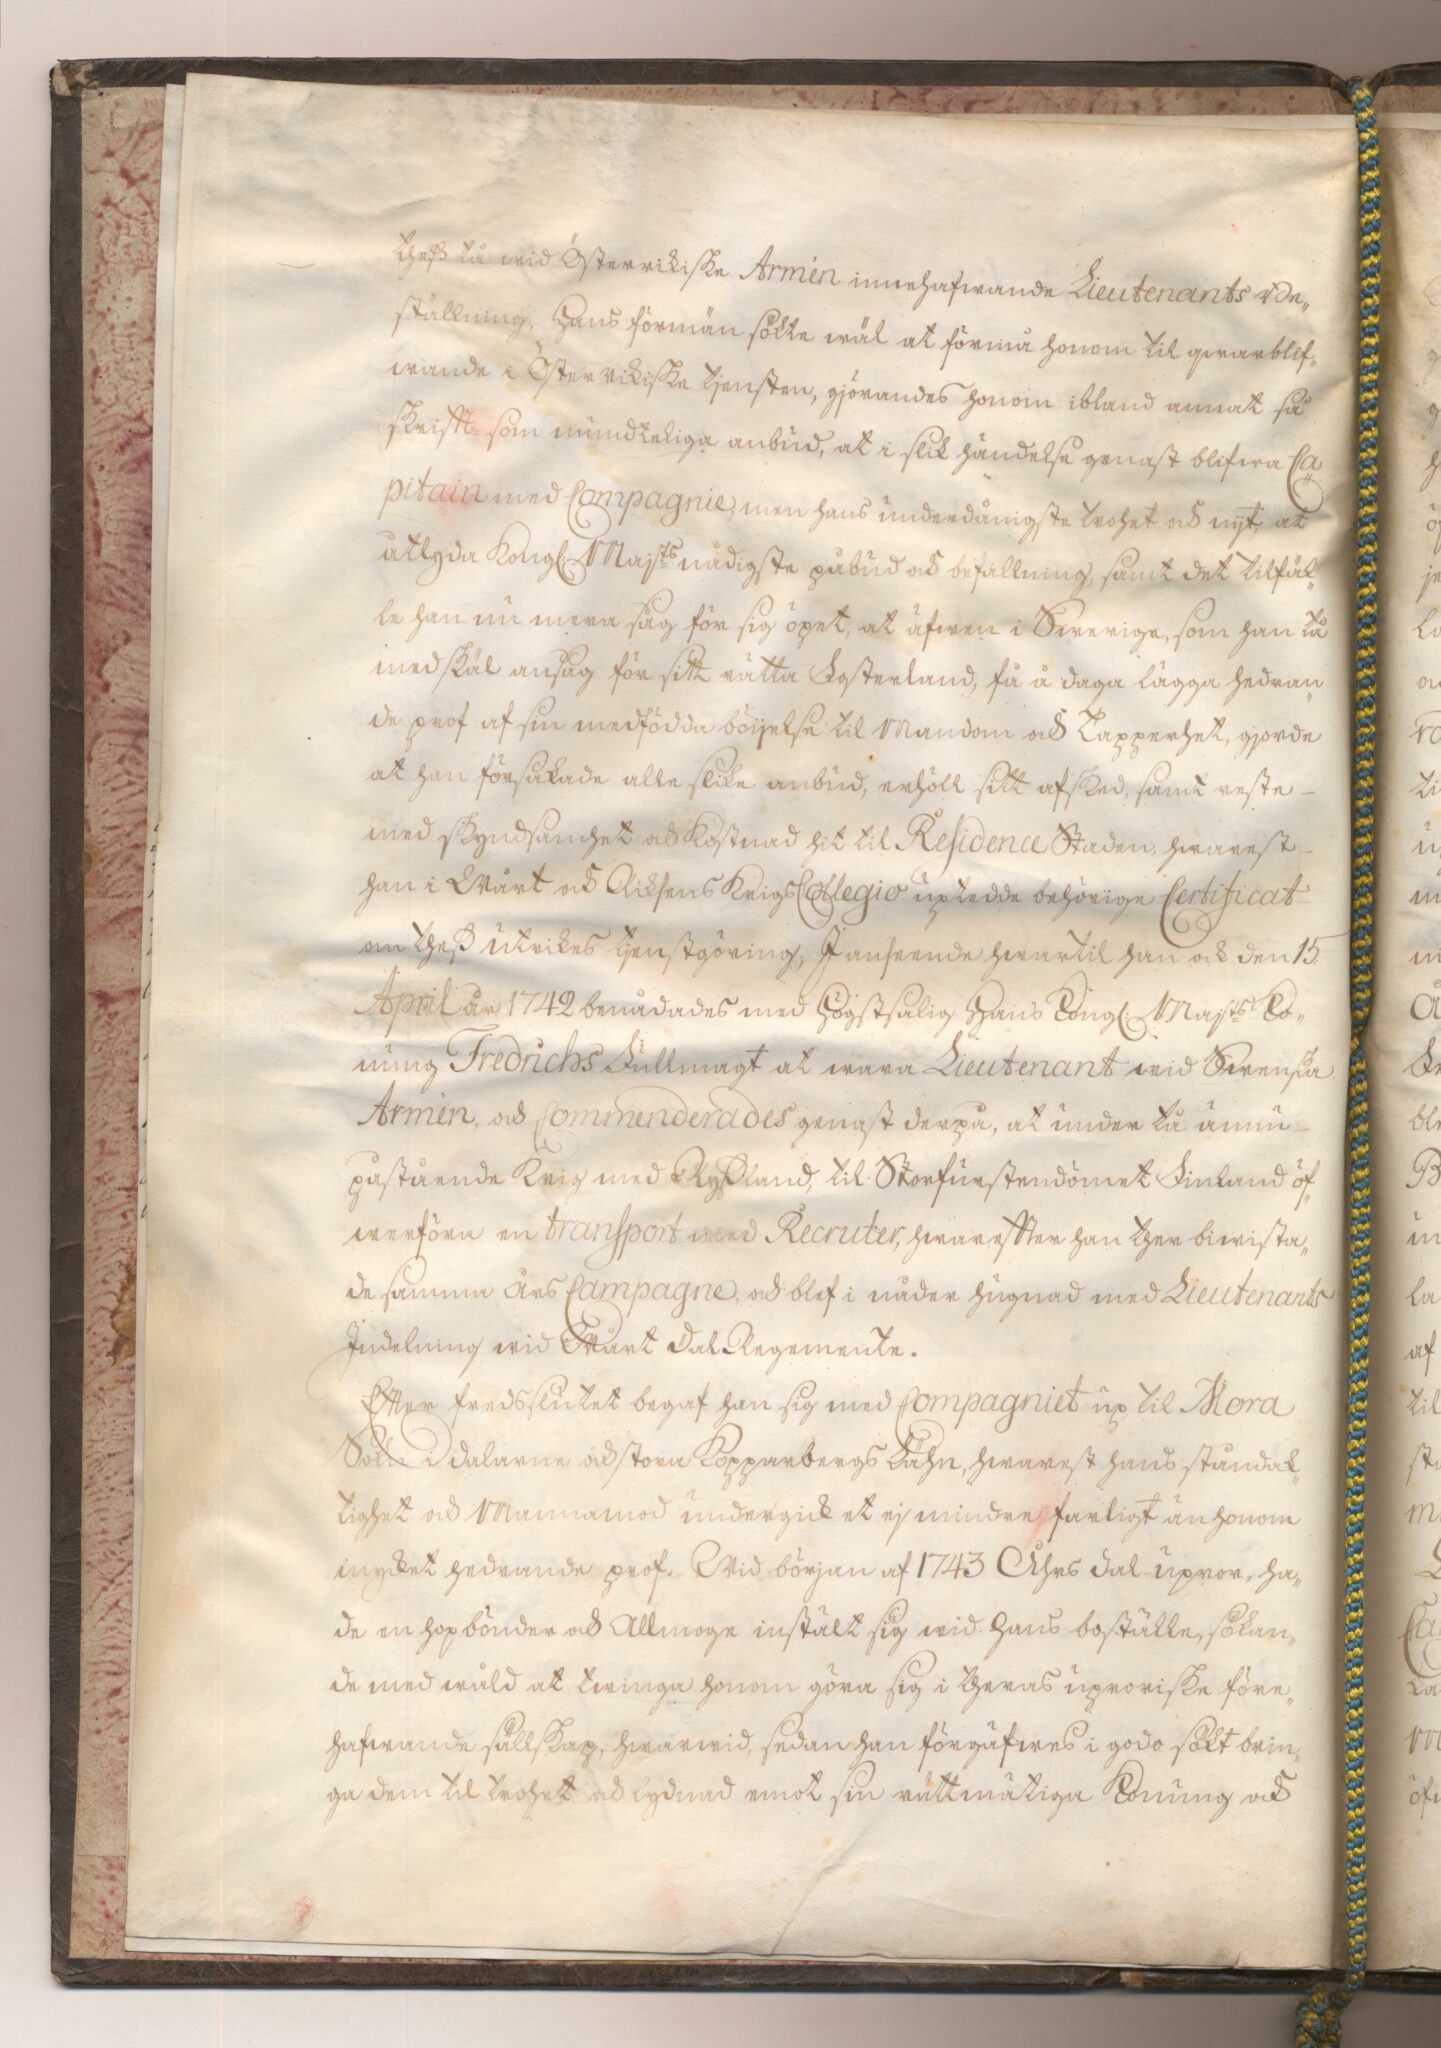 theß tå wid Österrikiske Armén innehafwande Lieutenants
ställning, Hans förmän sökte wäl at förmå honom til qwarblif„
wande i Österrikiske tjensten, gjörandes honom ibland annat så
skrift- som mundteliga anbud, at i slik händelse genast blifwa Ca
pitain med Compagnie, men hans underdånigste trohet och nijt, at
åtlyda Kongl: Majts nådigste påbud och befallning, samt det tilfäl„
le han nu mera såg för sig öpet, at äfwen i Swerige, som han tå
med skäl ansåg för sitt rätta fosterland, få å daga lägga hedran„
de prof af sin medfödda böijelse til Mandom och Tapperhet, gjorde
at han försakade alle slike anbud, erhöll sitt afsked, samt reste
med skyndsamhet och Kostnad hit til Residence Staden, hwarest
han i Wårt och Riksens Krigs Collegio uptedde behörige Certificat
om theß utrikes tjenstgöring, I anseende hwartil han ock den 15.
April år 1742 benådades med Högstsalig Hans Kongl: Majts Ko„
nung Fredrichs Fullmagt at wara Lieutenant wid Swenska
Armén, och Commenderades genast derpå, at under tå ännu
påstående Krig med Ryßland, til Storfurstendömet Finland öf„
werföra en transport med Recruter, hwarefter han ther biwista„
de samma års Campagne, och blef i nåder hugnad med Lieutenants
Indelning wid Wårt Dal Regemente.
Efter fredsslutet begaf han sig med Compagniet up til Mora
Soln i Dalarne och stora Kopparbergs Lähn, hwarest hans ståndak„
tighet och Mannamod undergick et ej mindre farligt än honom
mycket hedrande prof. Wid början af 1743 Åhrs Dal-upror, ha„
de en hop bönder och Allmoge instält sig wid hans boställe, sökan„
de med wåld at twinga honom göra sig i theras uproriske före„
hafwande sällskap, hwarwid, sedan han förgäfwes i godo sökt brin„
ga dem til trohet och lydnad emot sin rättmätiga Konung och